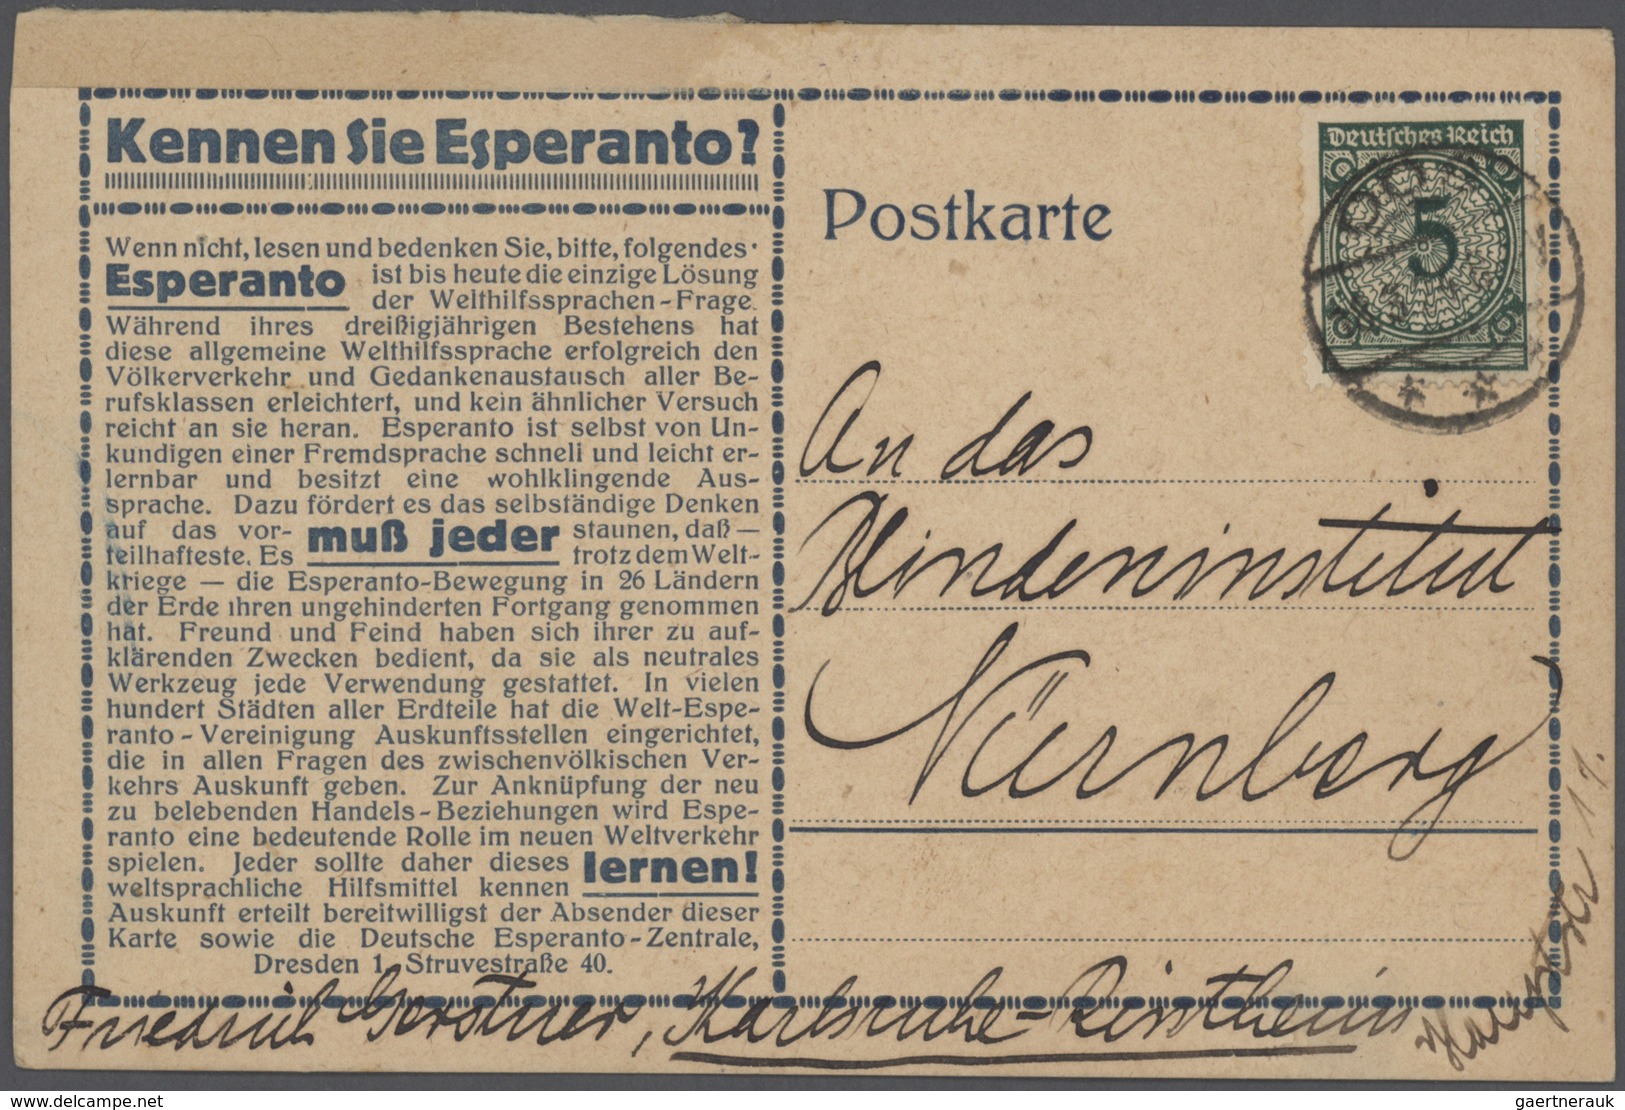 Kennen Sie Esperanto?
Wenn nicht, lesen und bedenken Sie, bitte, folgendes·
Esperanto ist bis heute die einzige Lösung
der Welthilfssprachen-Frage.
Während ihres dreißigjährigen Bestehens hat
diese allgemeine Welthilfssprache erfolgreich den
Völkerverkehr und Gedankenaustausch aller Be-
rufsklassen erleichtert, und kein ähnlicher Versuch
reicht an sie heran. Esperanto ist selbst von Un-
kundigen einer Fremdsprache schnell und leicht er-
lernbar und besitzt eine wohlklingende Aus-
sprache. Dazu fördert es das selbständige Denken
auf das vor- muß jeder staunen, daß —
teilhafteste. Es trotz dem Welt-
kriege — die Esperanto-Bewegung in 26 Ländern
der Erde ihren ungehinderten Fortgang genommen
hat. Freund und Feind haben sich ihrer zu auf-
klärenden Zwecken bedient, da sie als neutrales
Werkzeug jede Verwendung gestattet. In vielen
hundert Städten aller Erdteile hat die Welt-Espe-
ranto-Vereinigung Auskunftsstellen eingerichtet,
die in allen Fragen des zwischenvölkischen Ver-
kehrs Auskunft geben. Zur Anknüpfung der neu
zu belebenden Handels-Beziehungen wird Espe-
ranto eine bedeutende Rolle im neuen Weltverkehr
spielen. Jeder sollte daher dieses lernen!
weltsprachliche Hilfsmittel kennen
Auskunft erteilt bereitwilligst der Absender dieser
Karte sowie die Deutsche Esperanto-Zentrale,
Dresden 1, Struvestraße 40.
Postkarte
Deutsches Reich
5
An das
Blindeninstitut
Nürnberg
Friedrich Gerstner, Karlsruhe-Rintheim
Hauptstr 17.
delcampe.net
gaertnerauk